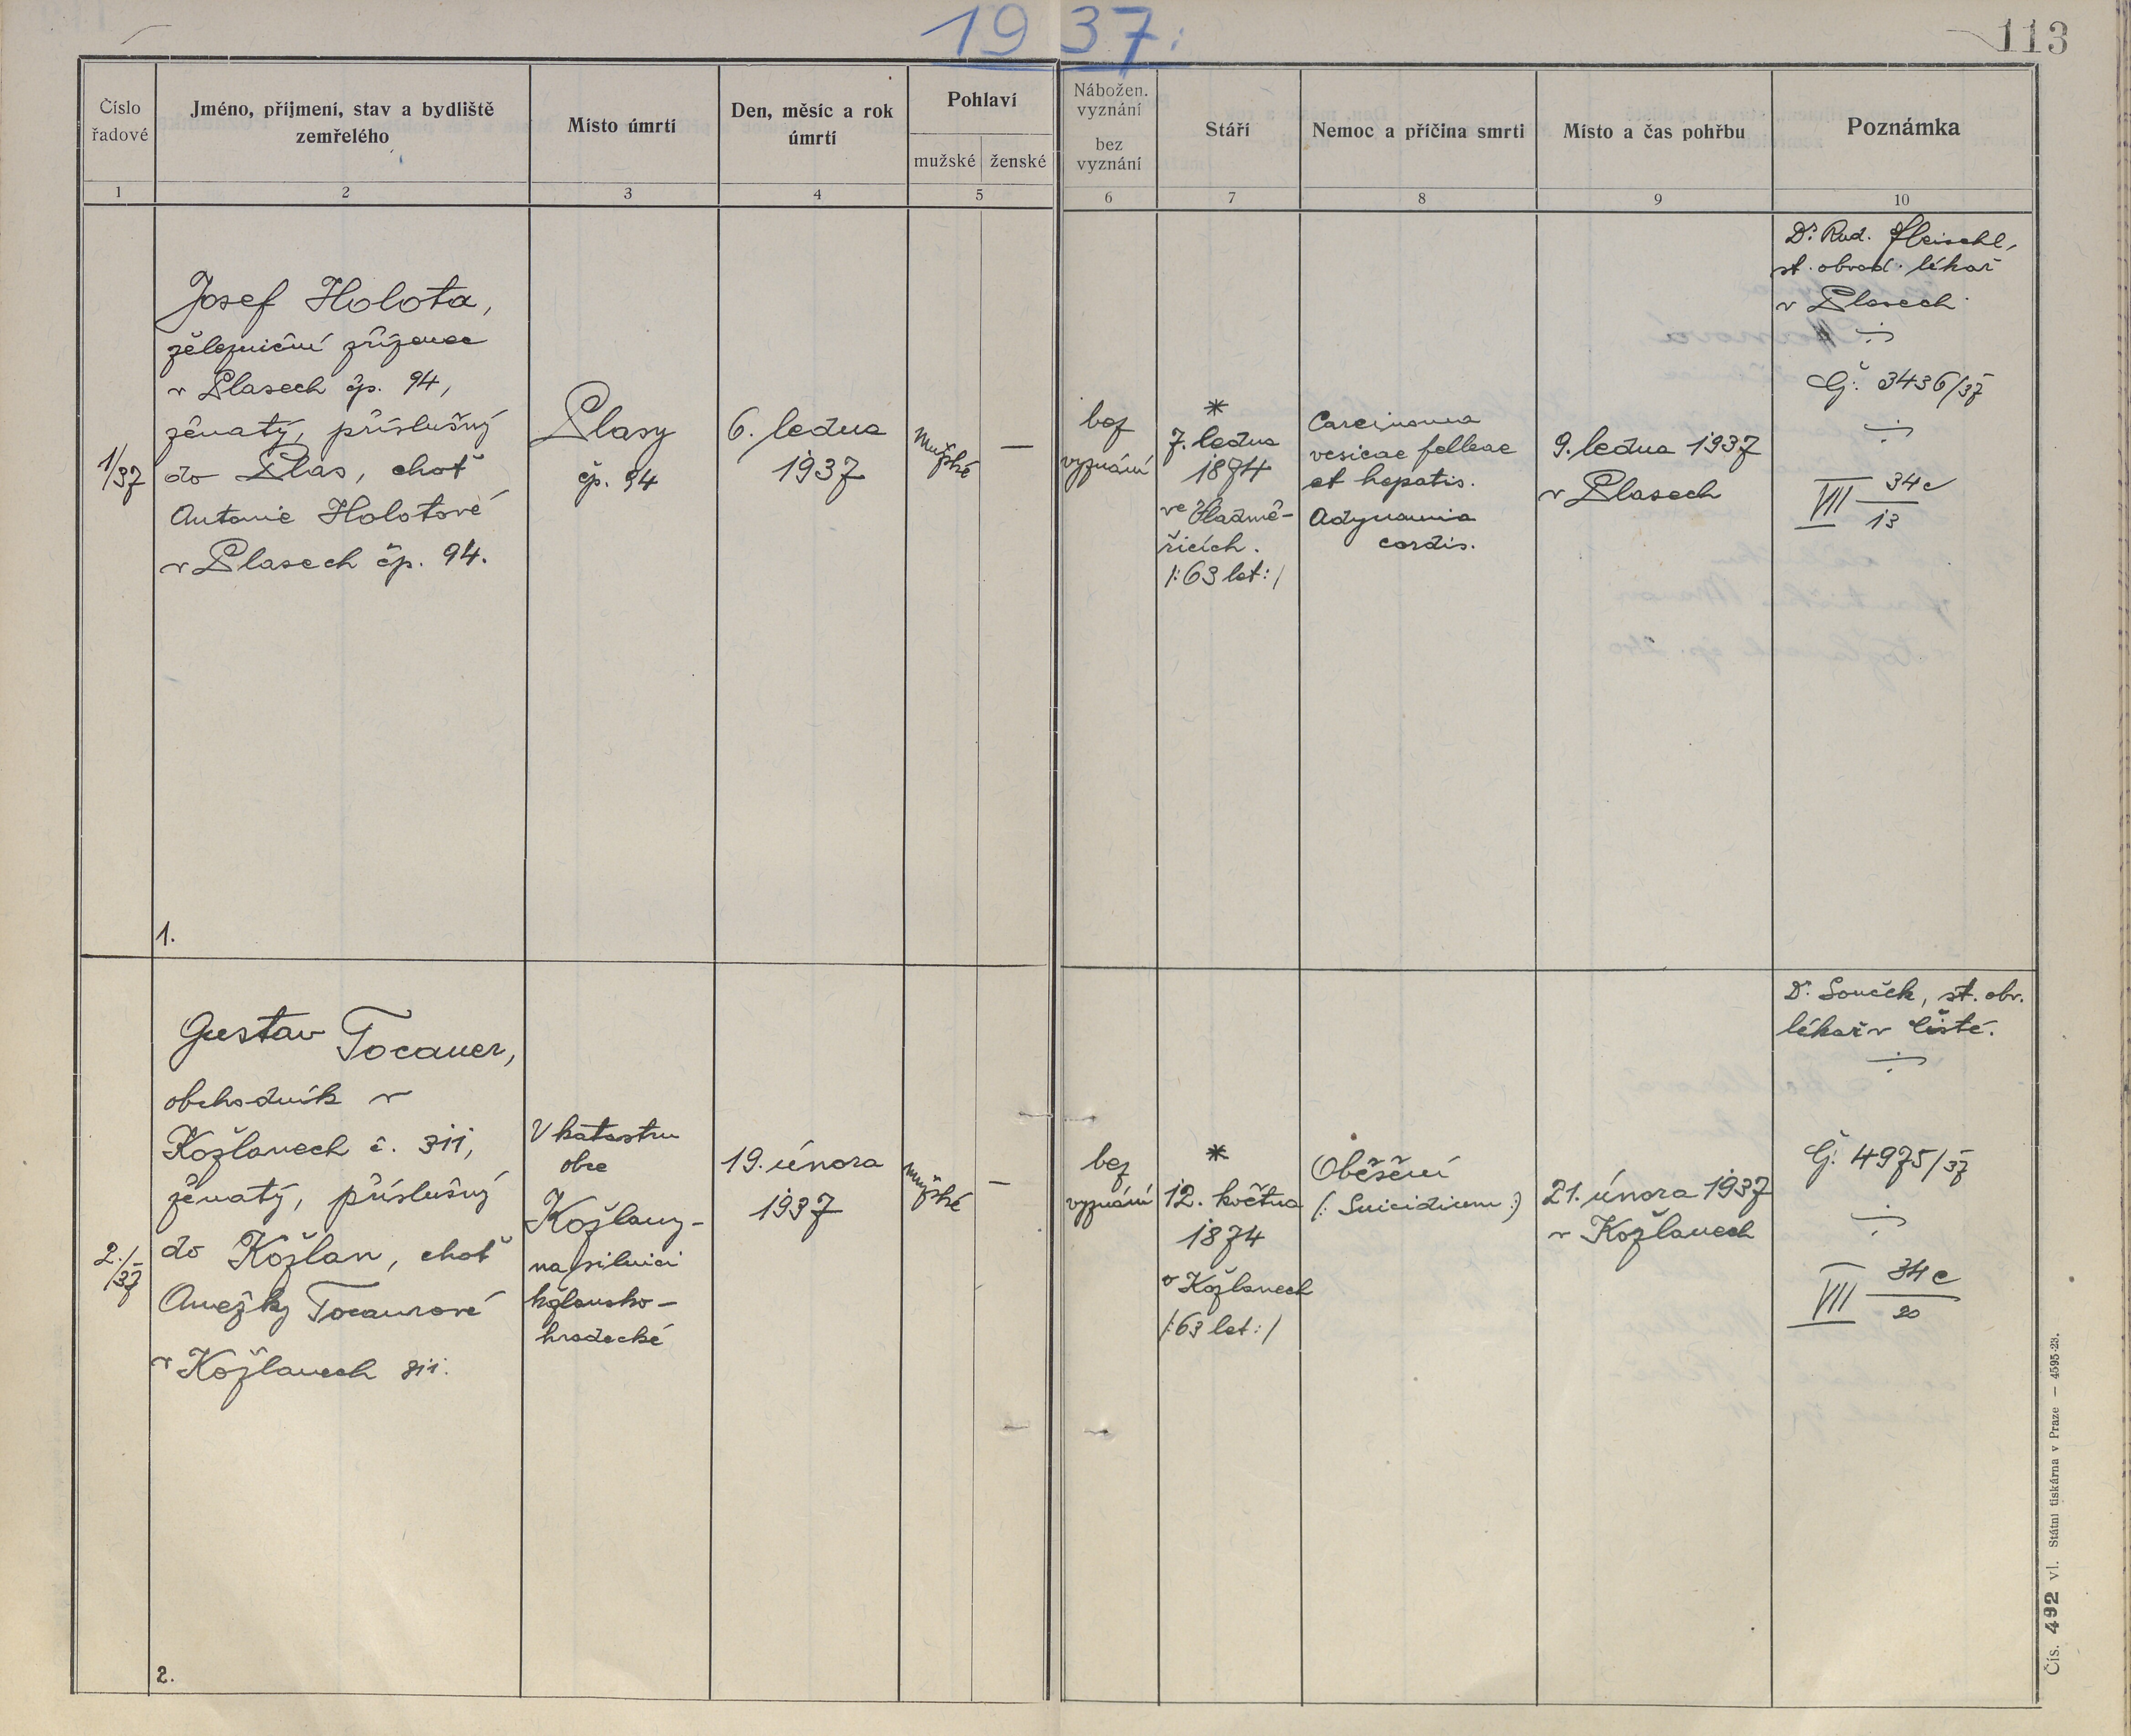 1937.
113
Číslo
řadové
Jméno, příjmení, stav a bydliště
zemřelého
Místo úmrtí
Den, měsíc a rok
úmrtí
Pohlaví
mužské
ženské
Nábožen.
vyznání
bez
vyznání
Stáří
Nemoc a příčina smrti
Místo a čas pohřbu
Poznámka
1
2
3
4
5
6
7
8
9
10
1/37
Josef Holota,
železniční zřízenec
v Plasech čp. 94,
ženatý, příslušný
do Plas, choť
Antonie Holotové
v Plasech čp. 94.
1.
Plasy
čp. 94
6. ledna
1937
mužské
—
bez
vyznání
*
7. ledna
1874
ve Vladmě-
řicích.
/:63 let:/
Carcinoma
vesicae felleae
et hepatis.
Adynamia
cordis.
9. ledna 1937
v Plasech
Dr. Rud. Fleischl,
st. obvod. lékař
v Plasech
Čj. 3436/37
VII 34c
13
2./37
Gustav Tocauer,
obchodník v
Kožlanech č. 311,
ženatý, příslušný
do Kožlan, choť
Anežky Tocaurové
v Kožlanech 311.
2.
V katastru
obce
Kožlany-
na silnici
kožlansko-
hradecké
19. února
1937
mužské
—
bez
vyznání
*
12. května
1874
v Kožlanech
/:63 let:/
Oběšení
(: Suicidium :)
21. února 1937
v Kožlanech
Dr. Souček, st. obv.
lékař v Čisté.
Čj. 4975/37
VII 34c
20
Čís. 492 vl. Státní tiskárna v Praze — 4595-23.